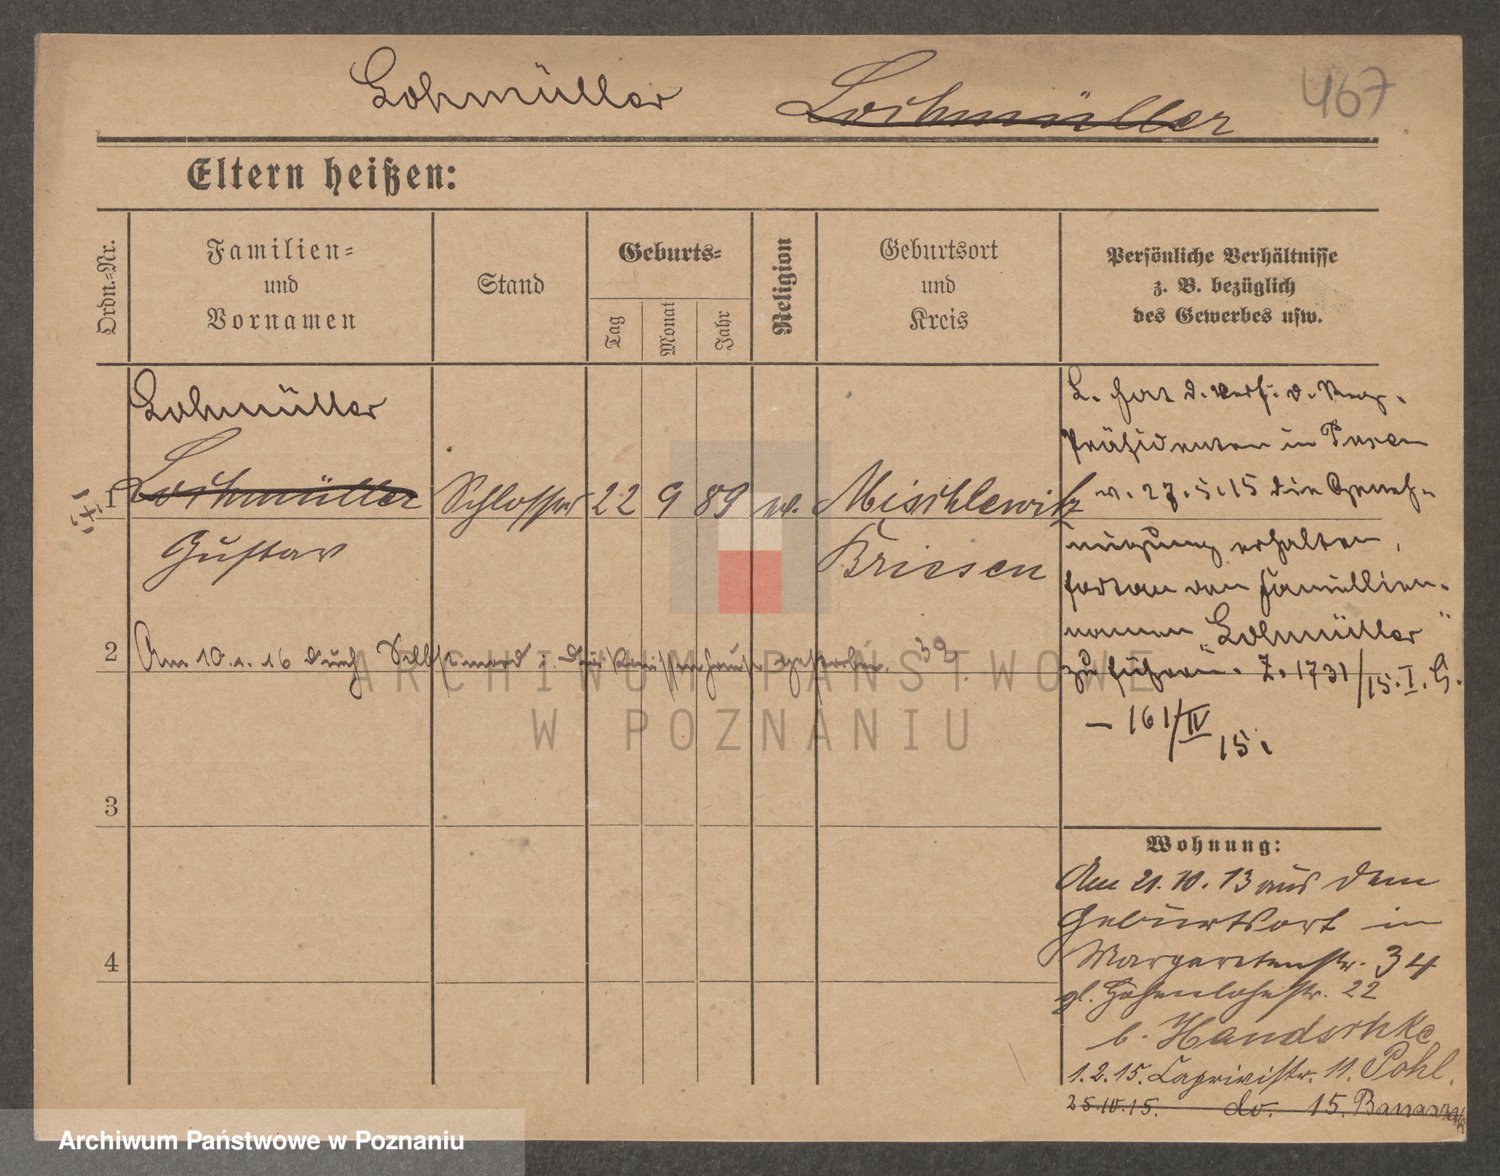 Lohmüller Lochmüller 467
Eltern heißen:
Ordn.=Nr.
Familien=
und
Vornamen
Stand
Geburts=
Tag
Monat
Jahr
Religion
Geburtsort
und
Kreis
Persönliche Verhältnisse
z. B. bezüglich
des Gewerbes usw.
Lohmüller
1 Lochmüller Schlosser 22 9 89 ev. Mischlewitz
Gustav Briesen
2 Am 10.1.16 durch Selbstmord i. Diakonissenhause gestorben. 32
3
4
L. hat d. Verf. d. Reg.
Präsidenten in Posen
v. 27.5.15 die Geneh-
migung erhalten,
fortan den Familien-
namen „Lohmüller"
zu führen. Z. 1731/15. I. G.
— 161/IV 15.
Wohnung:
Am 21.10.13 aus dem
Geburtsort in
Margaretenstr. 34
gl. Hohenlohestr. 22
b. Handschke
1.2.15. Caprivistr. 11. Pohl.
25.10.15. do. 15.
ARCHIWUM PAŃSTWOWE
W POZNANIU
Archiwum Państwowe w Poznaniu